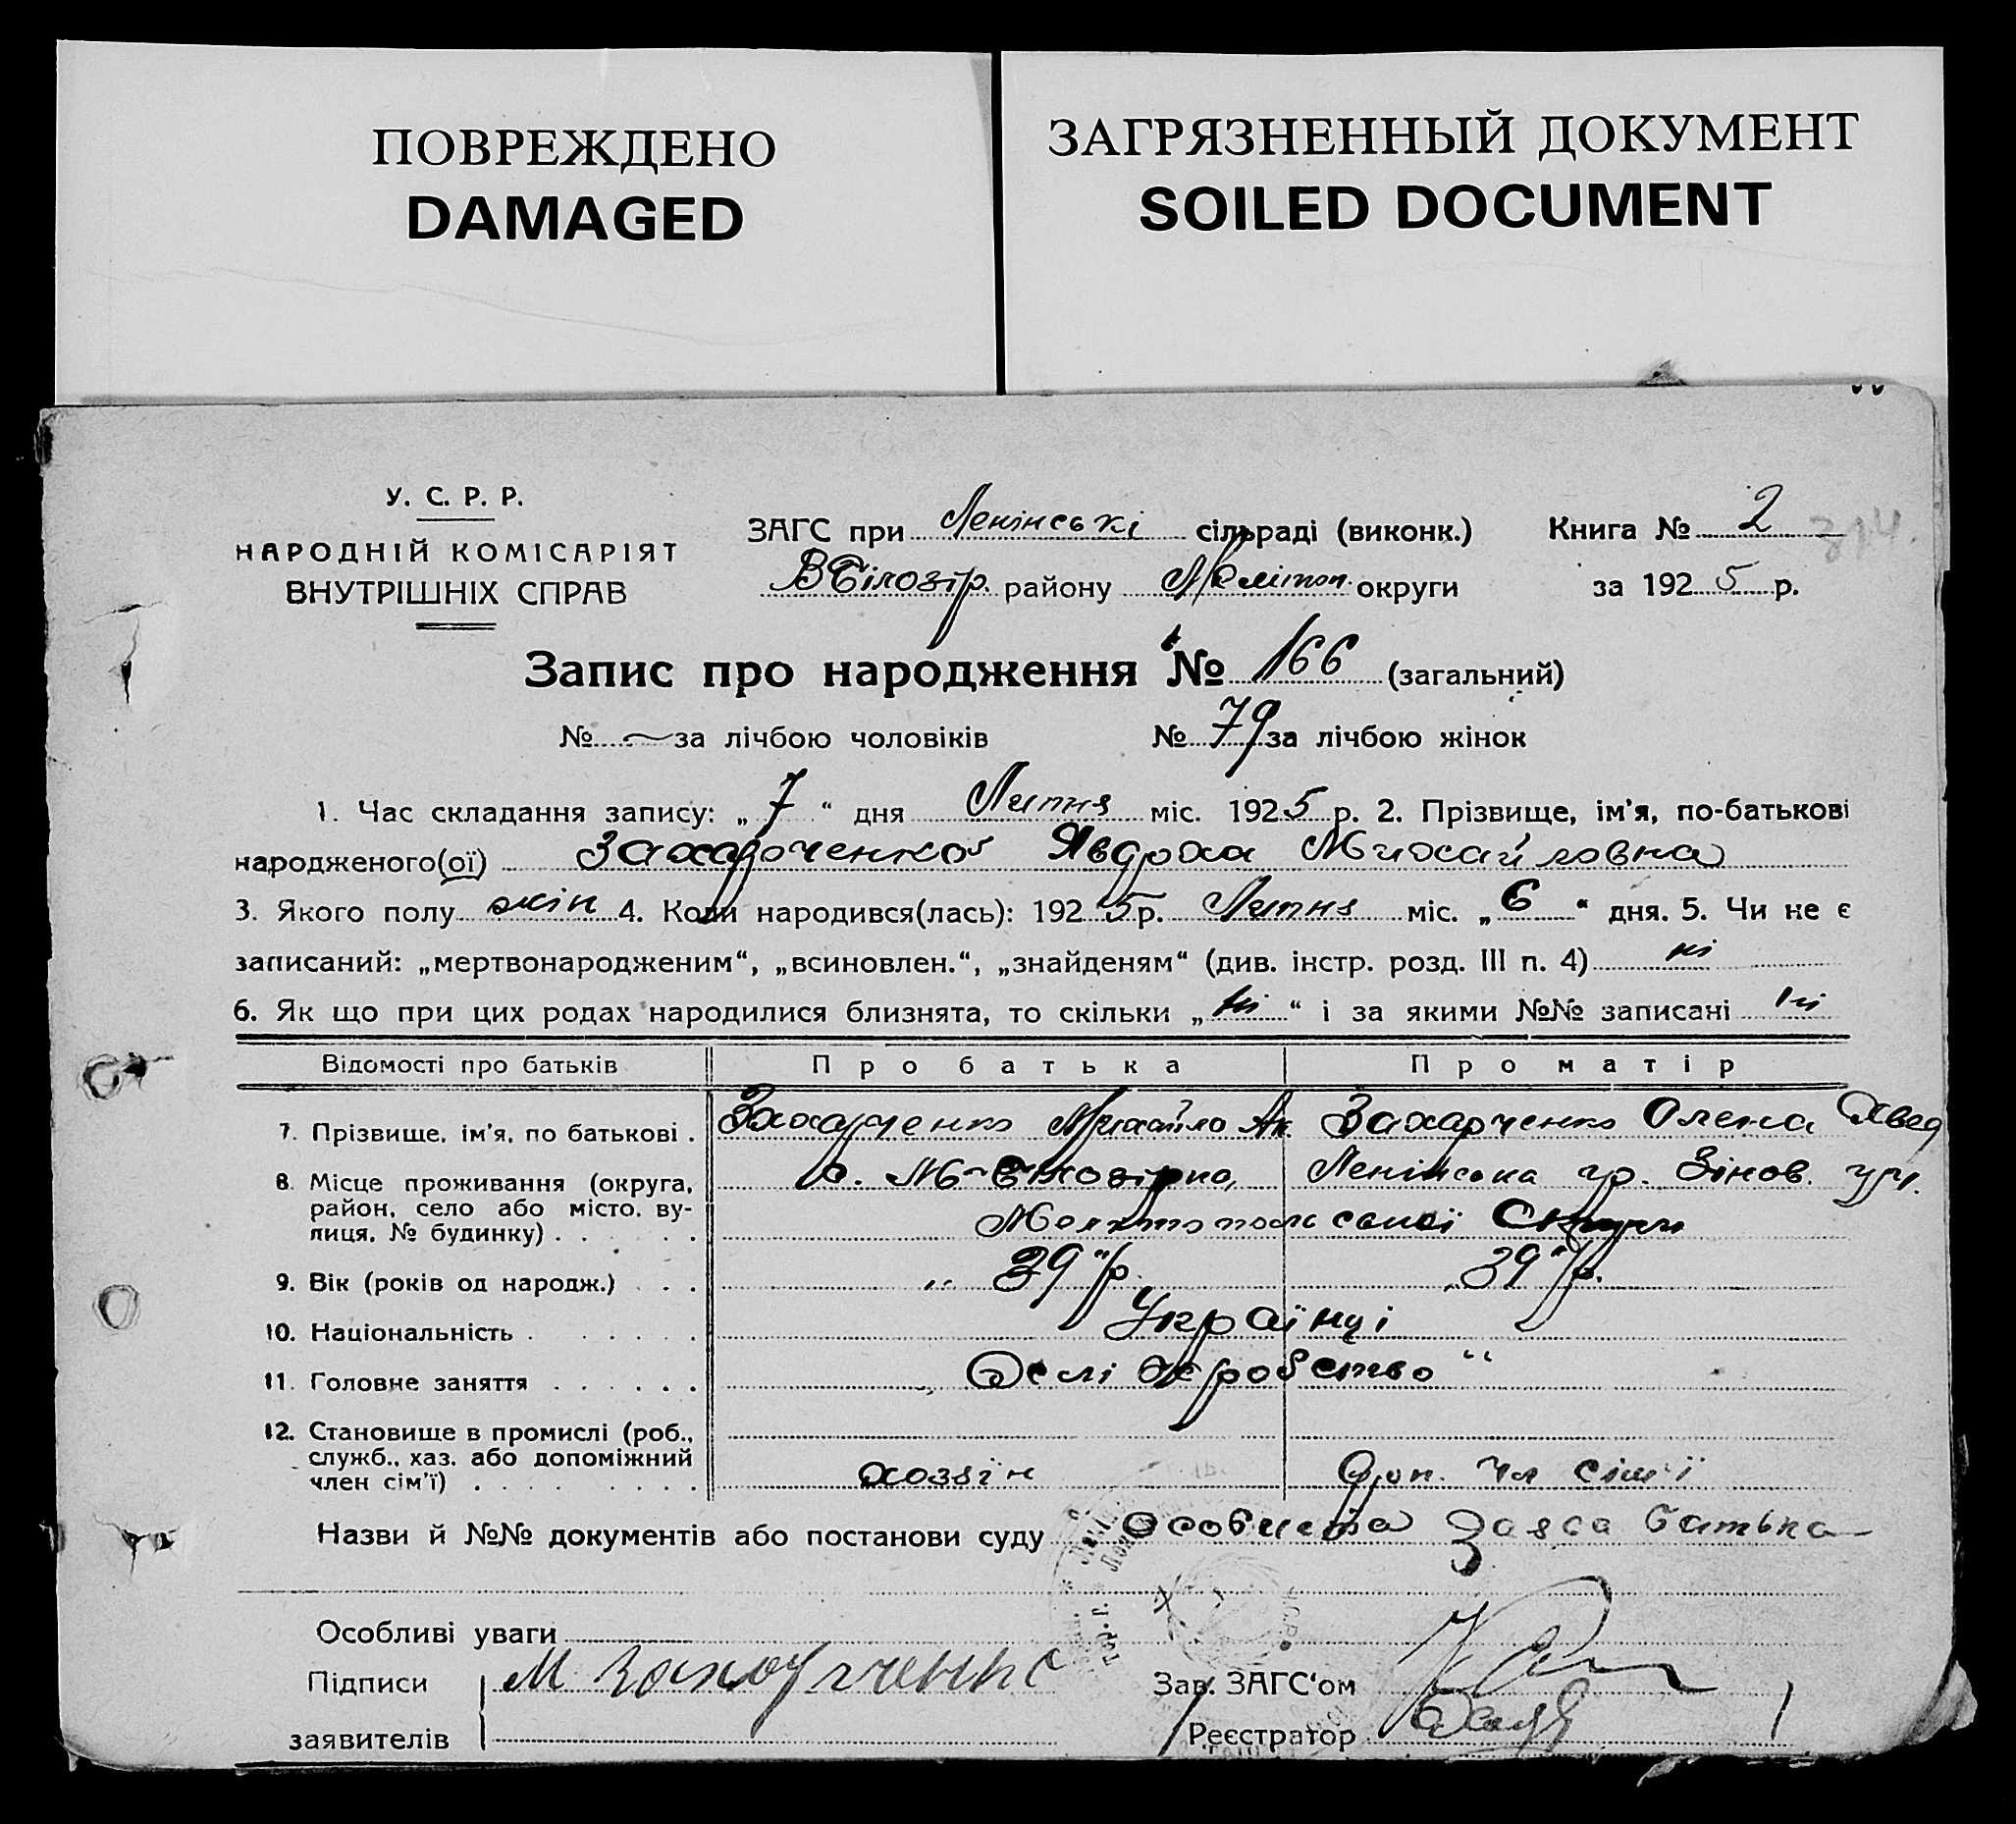 ПОВРЕЖДЕНО
DAMAGED
ЗАГРЯЗНЕННЫЙ ДОКУМЕНТ
SOILED DOCUMENT
У. С. Р. Р.
НАРОДНІЙ КОМІСАРІЯТ
ВНУТРІШНІХ СПРАВ
ЗАГС при Ленінські сільраді (виконк.)
ВБілозір. району Мелітоп. округи
Книга № 2
314.
за 1925 р.
Запис про народження № 166 (загальний)
№ — за лічбою чоловіків № 79 за лічбою жінок
1. Час складання запису: „7“ дня Липня міс. 1925 р. 2. Прізвище, ім'я, по-батькові
народженого(ої) Захарченкоः Явдоха Михайловна
3. Якого полу жін 4. Коли народився(лась): 1925 р. Липня міс. „6“ дня. 5. Чи не є
записаний: „мертвонародженим“, „всиновлен.“, „знайденям“ (див. інстр. розд. III п. 4) ні
6. Як що при цих родах народилися близнята, то скільки „ні“ і за якими №№ записані ні
Відомості про батьків Про батька Про матір
7. Прізвище, ім'я, по батькові . Захарченко Михайло Ак. Захарченко Олена Явед
8. Місце проживання (округа, Ленінська гр. Зінов.
район, село або місто, ву-
лиця, № будинку) . . . . . . Мелитопольської Округи
9. Вік (років од народж.) . . . 39 р. 39 р.
10. Національність . . . . . . Українці
11. Головне заняття . . . . . . „Хліборобство“
12. Становище в промислі (роб.,
служб., хаз. або допоміжний
член сім'ї) . . . . . . хозяїн доп. чл сім'ї
Назви й №№ документів або постанови суду особиста заява батька
Особливі уваги
Підписи М Захарченко Зав. ЗАГС'ом
заявителів Реєстратор